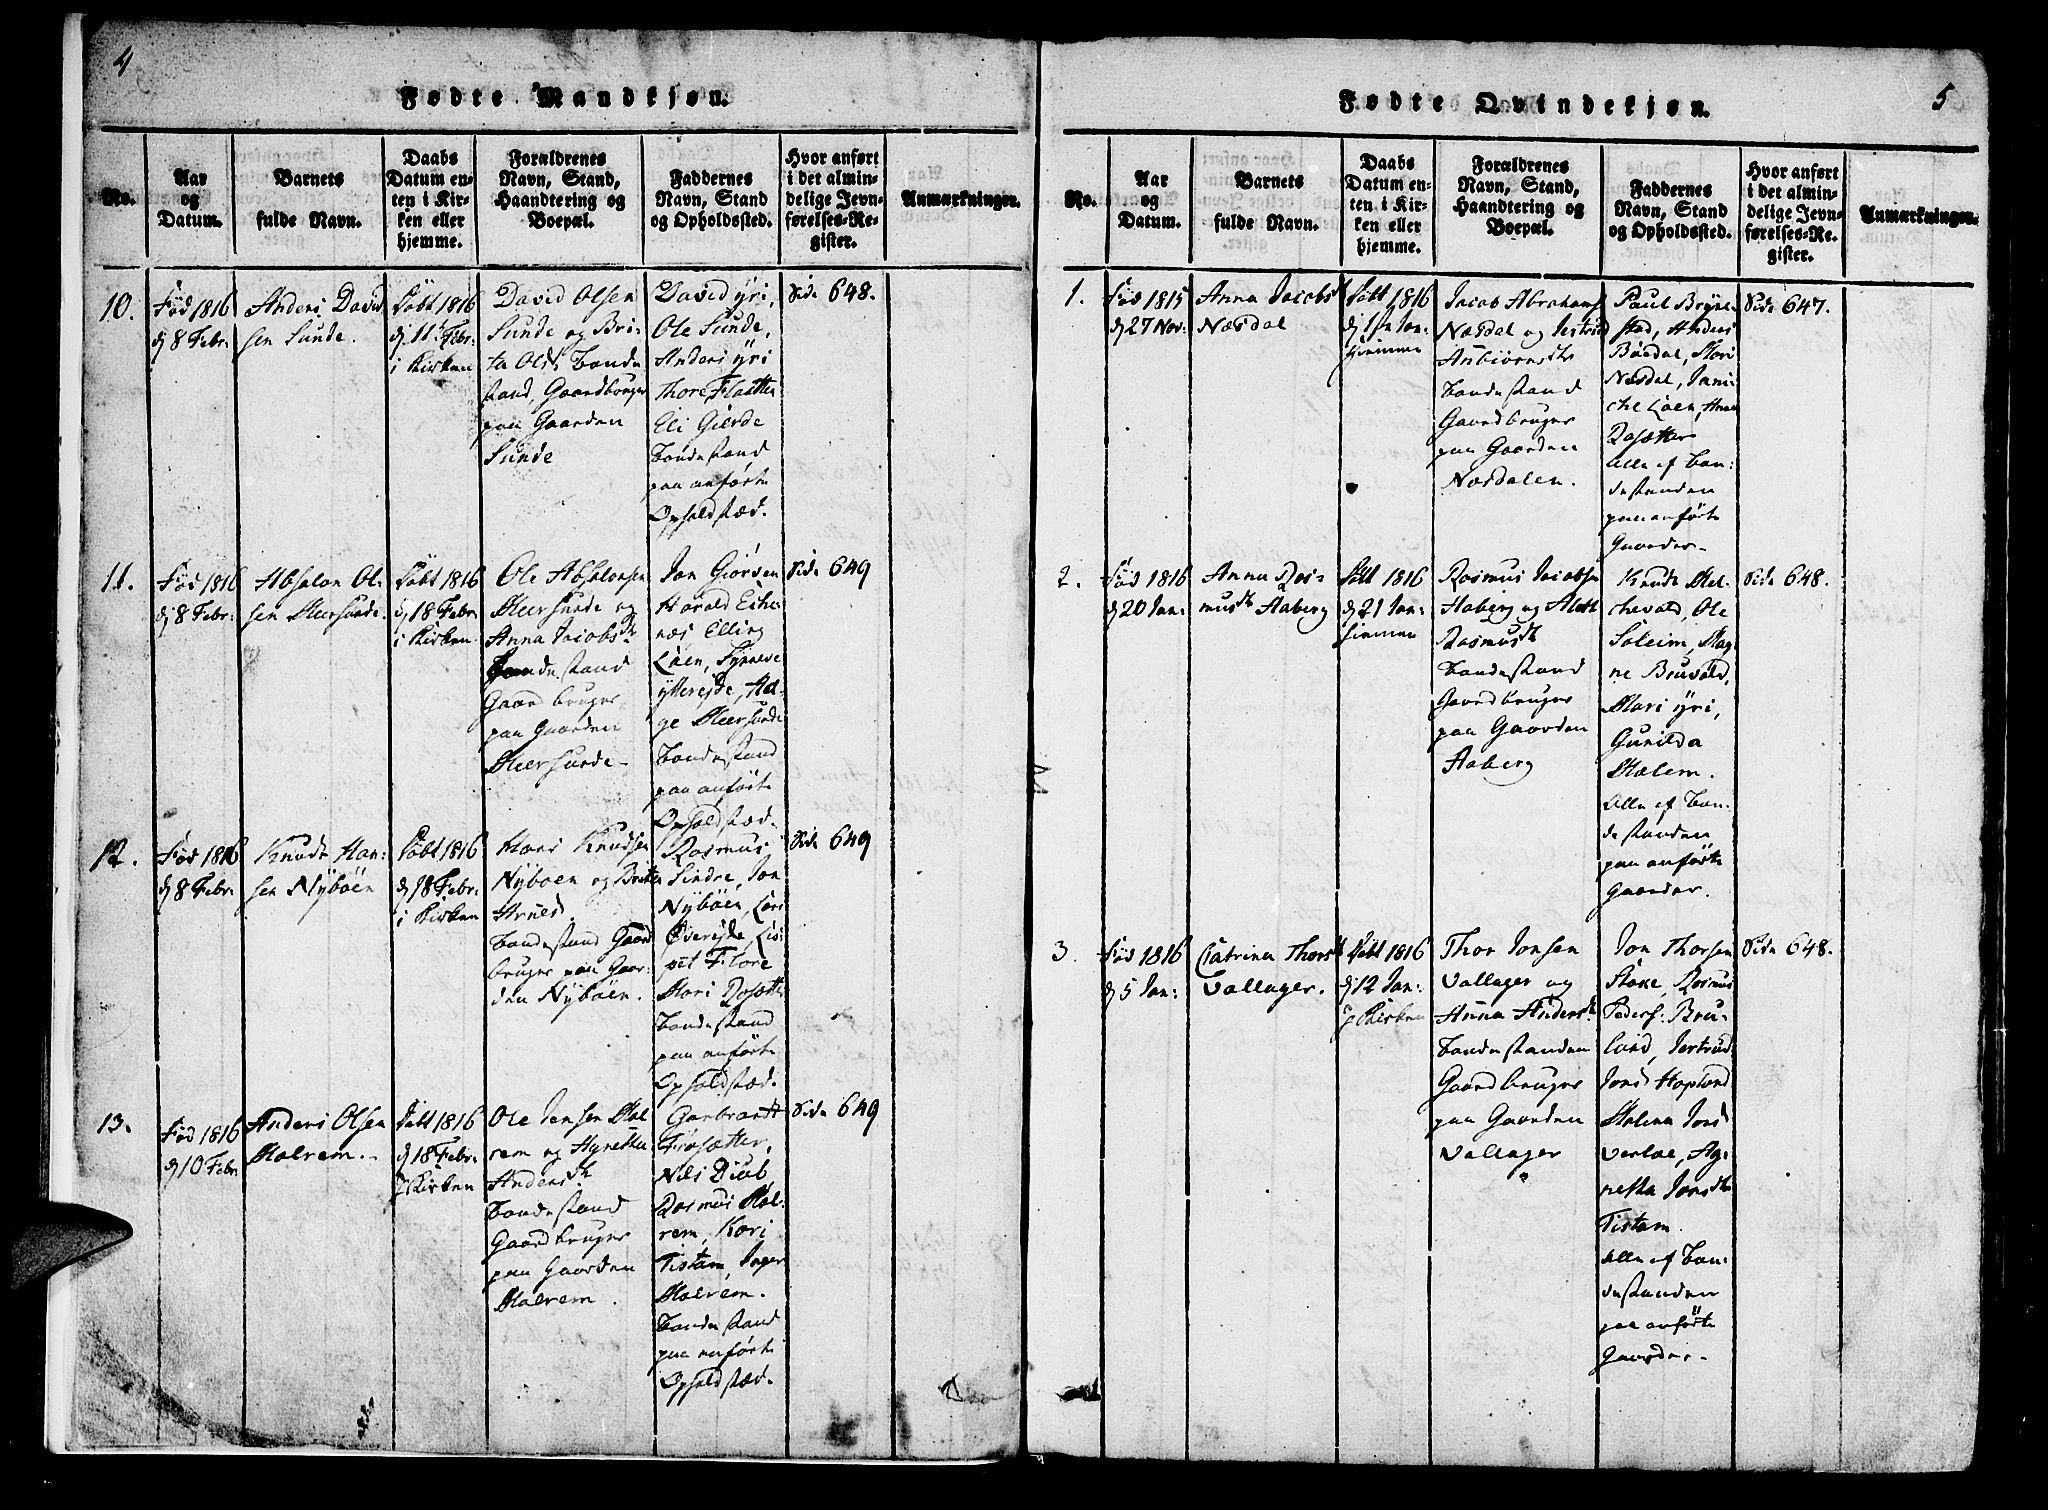 4
Fødte Mandkjøn.
No.
Aar
og
Datum.
Barnets
fulde Navn.
Daabs
Datum en-
ten i Kir-
ken eller
hjemme.
Forældrenes
Navn, Stand,
Haandtering og
Boepæl.
Faddernes
Navn, Stand
og Opholdssted.
Hvor anført
i det almin-
delige Jevn-
førelses-Re-
gister.
Anmærkninger.
10.
Fød 1816
d 8 Febr:
Anders David
sen Sunde.
Døbt 1816
d 11t Febr:
i Kirken
David Olsen
Sunde og Bri-
ta Olsd. Bonde
stand, Gaardbruger
paa Gaarden
Sunde
David Yri,
Ole Sunde,
Anders Yri
Thore Flaatten
Eli Gierde
Bondestand
paa anførte
Opholdstæd.
Side 648.
11.
Fød 1816
d 8 Febr:
Absalon Ol-
sen Meersunde.
Døbt 1816
d 18 Febr:
i Kirken.
Ole Absalonsen
Meersunde og
Anna Jacobsdtr
Bondestand
Gaardbruger
paa Gaarden
Meersunde
Jon Giørven
Harald Eike-
næs Elling
Løen, Synneve
Ytterejde, Hel-
ge Meersunde
Bondestand
paa anførte
Opholdstæd.
Side 649
12.
Fød 1816
d 8 Febr:
Knude Han-
sen Nÿbøen
Døbt 1816
d 18 Febr:
i Kirken
Hans Knudsen
Nÿbøen og Britta
Arnesd.
Bondestand Gaard
bruger paa Gaar-
den Nÿbøen.
Rasmus
Sindre, Jon
Nÿbøen, Lars
Øverejde, Lis-
pet Flore
Mari Rosætter
Bondestand
paa anførte
Opholdstæd.
Side 649
13.
Fød 1816
d 10 Febr
Anders Olsen
Malrem.
Døbt 1816
d 18 Febr:
i Kirken
Ole Jensen Mal
rem og Agnetha
Andersdtr
Bondestand
Gaardbruger
paa Gaarden
Malrem.
Garbrandt
Fiosætter,
Nils Diub
Rasmus Mal-
rem, Kari
Tistam, Inger
Malrem.
Bondestand
paa anførte
Opholdstæd.
Side 649
5
Fødte Qvindekjøn.
No.
Aar
og
Datum.
Barnets
fulde Navn.
Daabs
Datum en-
ten i Kir-
ken eller
hjemme.
Forældrenes
Navn, Stand,
Haandtering og
Boepæl.
Faddernes
Navn, Stand
og Opholdssted.
Hvor anført
i det almin-
delige Jevn-
førelses-Re-
gister.
Anmærkninger.
1.
Fød 1815
d 27 Nov:
Anna Jacobsd
Næsdal
Døbt 1816
d 1ste Jan:
hjemme
Jacob Abrahams
Næsdal og Jertrud
Anbiørnsdtr
Bondestand
Gaardbruger
paa Gaarden
Næsdalen.
Paul Bryne-
stad, Anders
Bødal, Mari
Næsdal, Jani-
che Løen, Anna
Rosætter
Alle af Bon-
destanden
paa anførte
Gaarder.
Side 647.
2.
Fød 1816
d 20 Jan:
Anna Ras-
musdtr Aaberg
Døbt 1816
d 21 Jan:
hjemme
Rasmus Jacobsen
Aaberg og Aleth
Rasmusdtr
Bondestand
Gaardbruger
paa Gaarden
Aaberg
Knude Mel-
chevold, Ole
Soleim, Mag-
ne Bruvold,
Mari Yri,
Gunilda
Mælem.
Alle af Bon-
destanden
paa anførte
Gaarder.
Side 648.
3.
Fød 1816
d 5 Jan:
Catrina Thorsd
Vallager.
Døbt 1816
d 12 Jan:
i Kirken
Thor Jonsen
Vallager og
Anna Andersd
Bondestanden
Gaardbruger
paa Gaarden
Vallager
Jon Thorsen
Støve, Rasmus
Peders: Bru-
land, Jertrud
Jonsd Hopland
Malena Jonsd
Verlae, Ag-
netha Jonsdtr
Tistam.
Alle af Bon-
destanden
paa anførte
Gaarder.
Side 648.